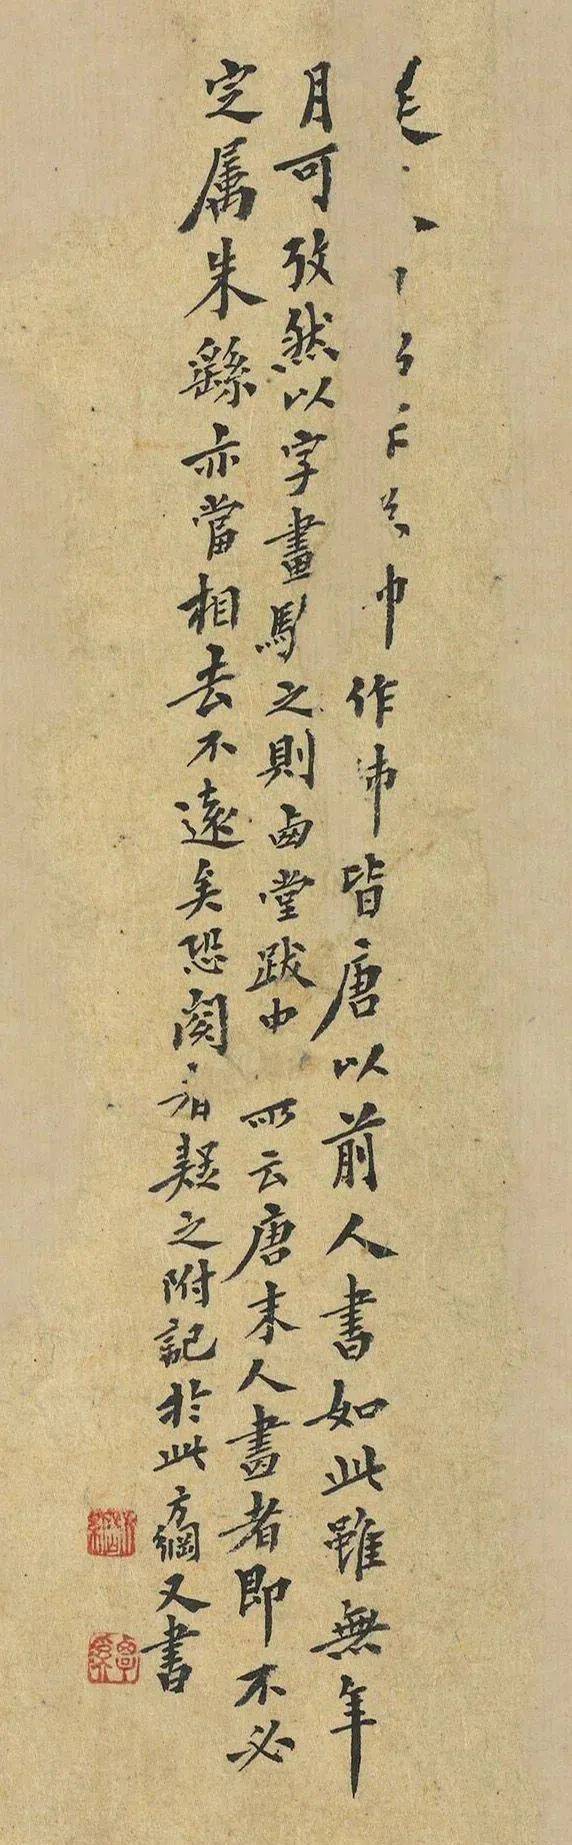 作皆唐以前人書如此雖無年
月可攷然以字畫之則卥堂跋中所云唐末人書者即不必
定属朱繇亦當相去不遠矣恐閱者疑之附記於此方綱又書